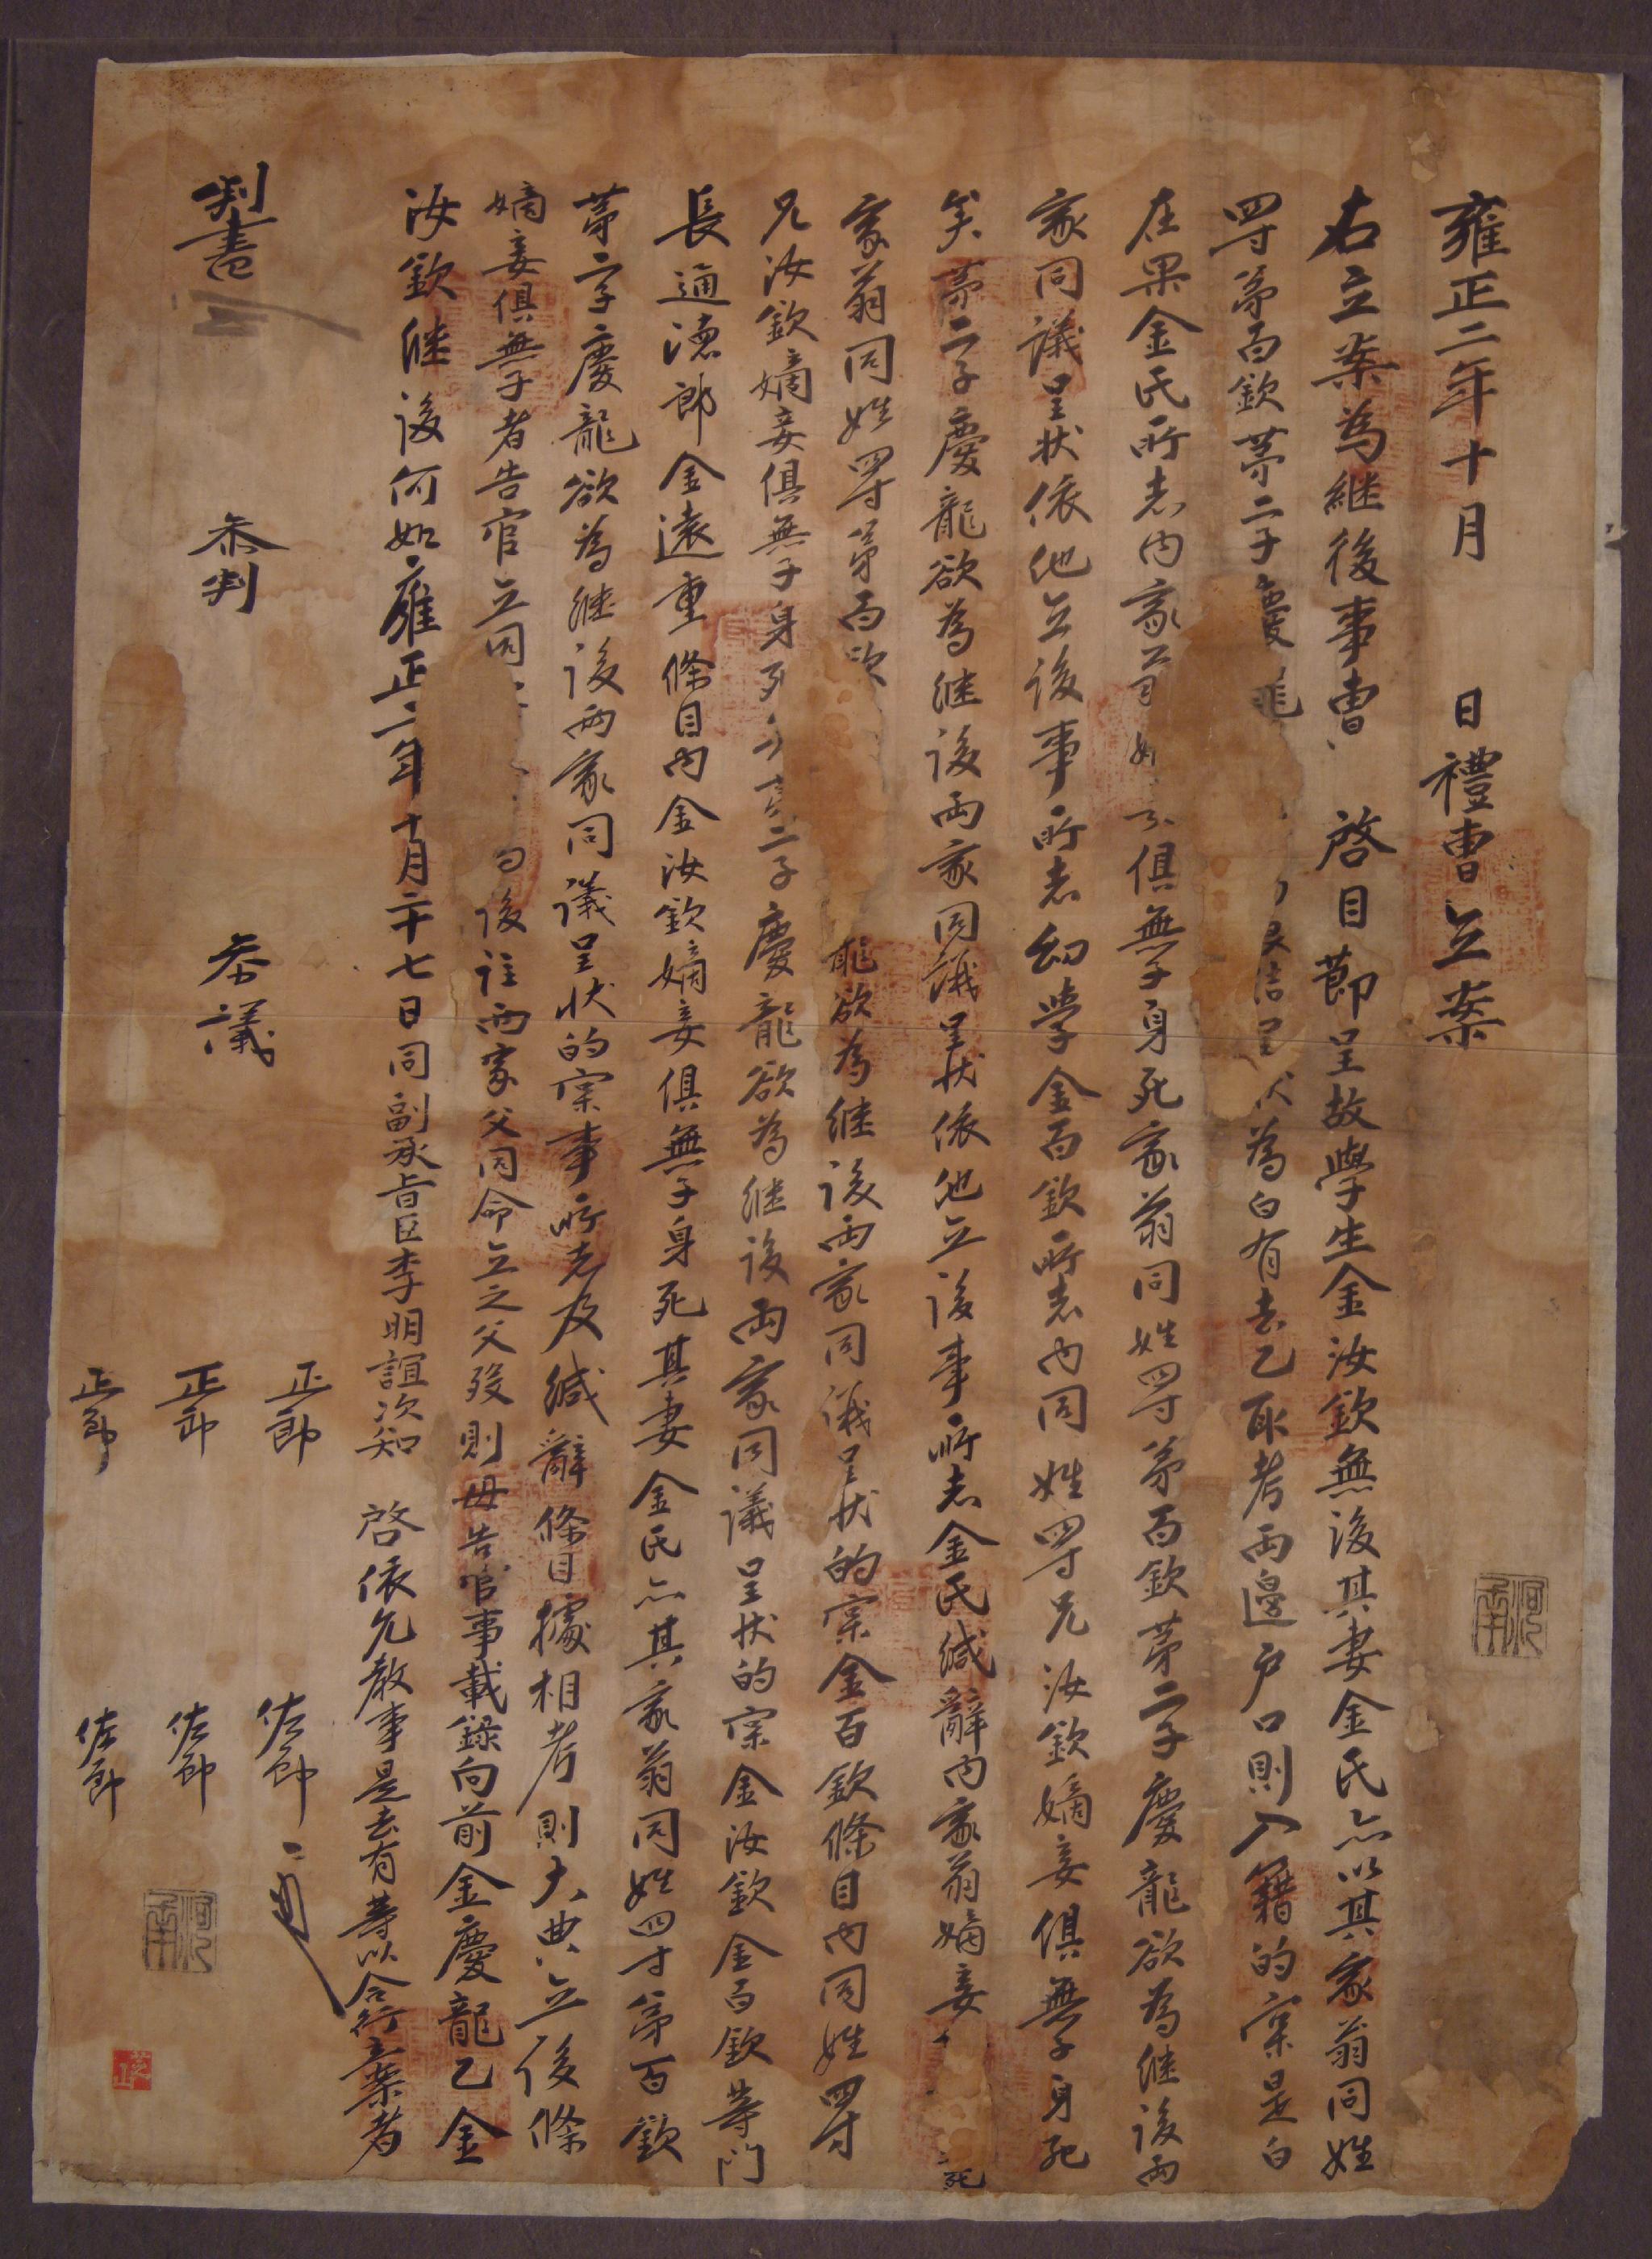 雍正二年十月 日禮曹立案
右立案爲継後事曹 啓目節呈故學生金汝欽無後其妻金氏亦以其家翁同姓
四寸弟百欽第二子慶龍 呈狀爲白有去乙取考兩邊戶口則入籍的實是白
在果金氏所志內家翁 俱無子身死家翁同姓四寸弟百欽第二子慶龍欲爲継後兩
家同議呈狀依他立後事所志幼學金百欽所志內同姓四寸兄汝欽嫡妾俱無子身死
矣第二子慶龍欲爲継後兩家同議呈狀依他立後事所志金氏緘辭內家翁嫡妾 死
家翁同姓四寸弟百欽 龍欲爲継後兩家同議呈狀的實金百欽條目內同姓四寸
兄汝欽嫡妾俱無子身死 二子慶龍欲爲継後兩家同議呈狀的實金汝欽金百欽等門
長通德郞金遠重條目內金汝欽嫡妾俱無子身死其妻金氏亦其家翁同姓四寸弟百欽
第二子慶龍欲爲継後兩家同議呈狀的實事所志及緘辭條目據相考則大典立後條
嫡妾俱無子者告官立同 後註兩家父同命立之父歿則母告官事載錄向前金慶龍乙金
汝欽継後何如雍正二年十月二十七日同副承旨臣李明誼次知 啓依允敎事是去有等以合行立案者
判書 參判 參議
正郞 佐郞
正郞 佐郞
正郞 佐郞